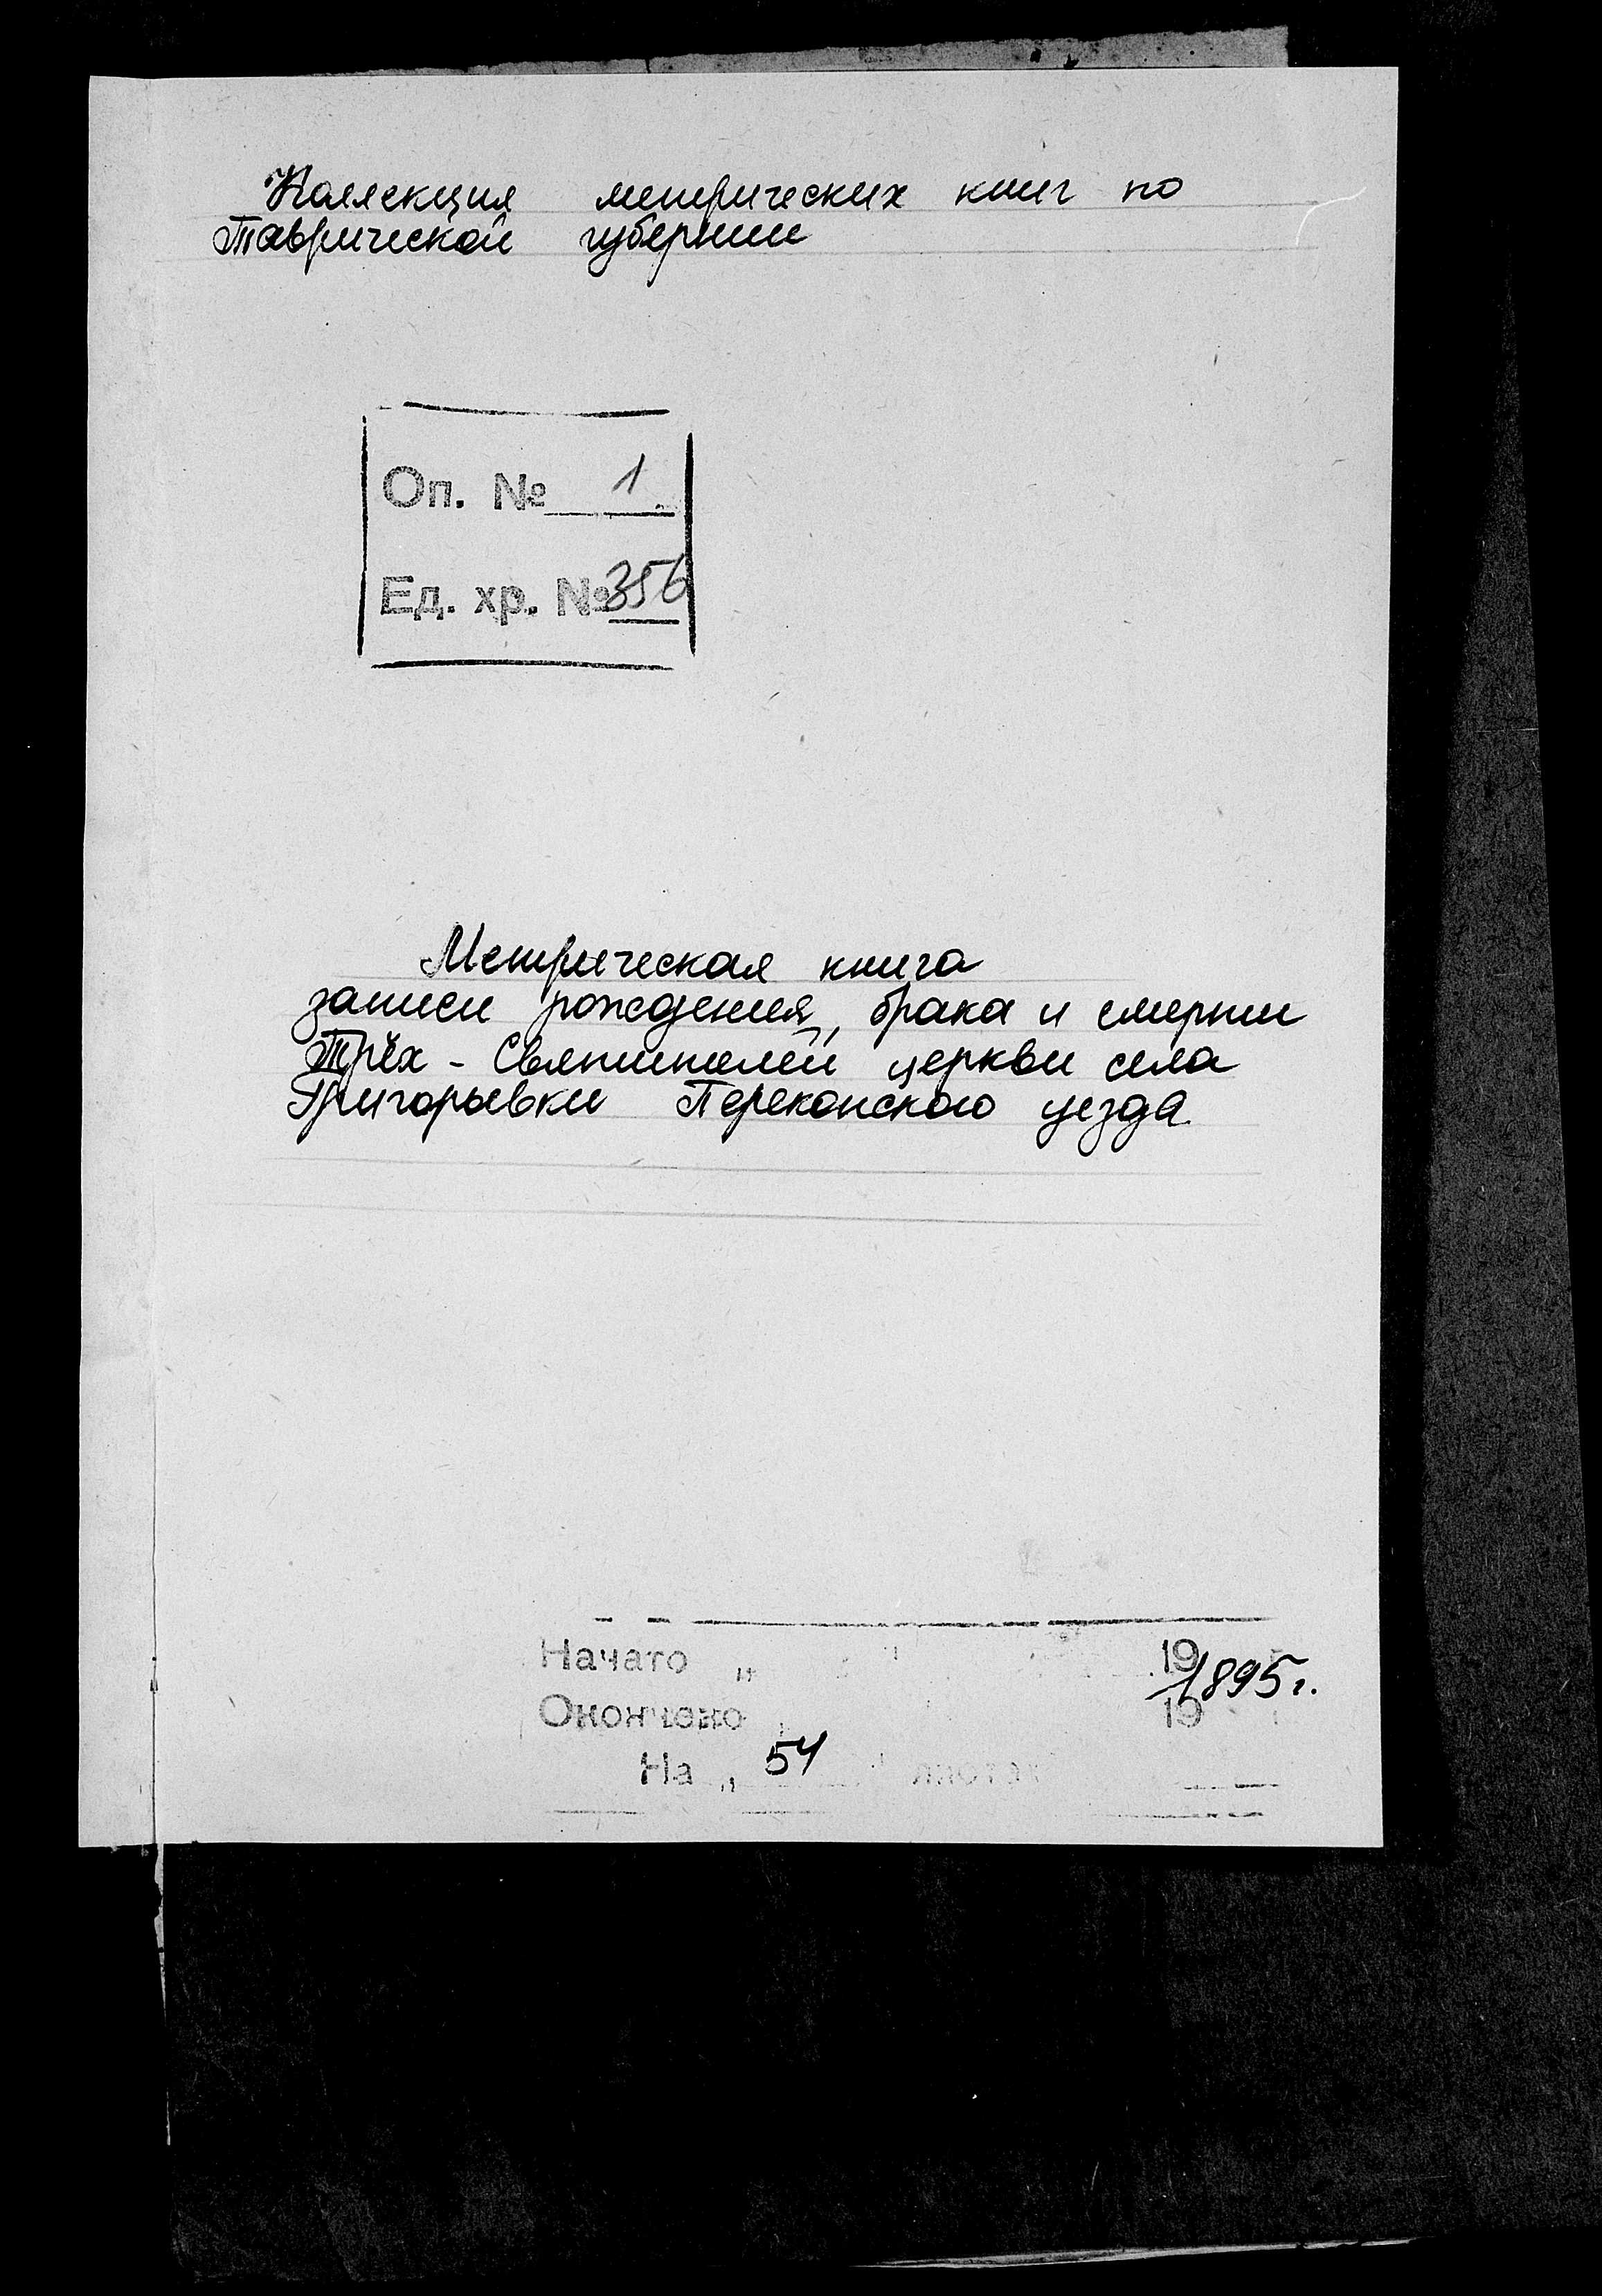 Коллекция метрических книг по
Таврической губернии
Оп. № 1
Ед. хр. № 356
Метрическая книга
записи рождения, брака и смерти
Трёх - Святителей церкви села
Григорьевки Перекопского уезда
Начато " " 19
1895 г.
Окончено 19
На " 54 " листах